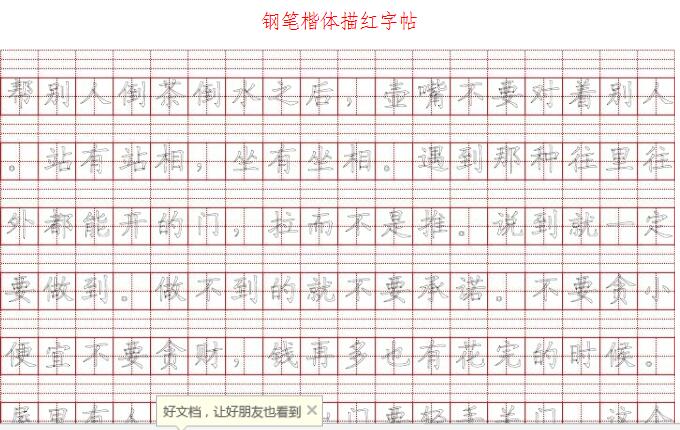 钢笔楷体描红字帖
帮别人倒茶倒水之后，壶嘴不要对着别人
。站有站相，坐有坐相。遇到那种往里往
外都能开的门，拉而不是推。说到就一定
要做到。做不到的就不要承诺。不要贪小
便宜不要贪财，钱再多也有花完的时候。
好文档，让好朋友也看到